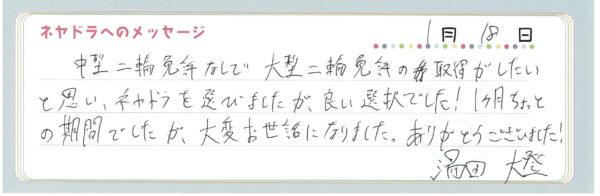 ネヤドラへのメッセージ
1月 18日
中型二輪免許なしで 大型二輪免許の取得がしたい
と思い、ネヤドラを選びましたが、良い選択でした！1ヶ月ちょっと
の期間でしたが、大変お世話になりました。ありがとうございました！
湯田 大燈